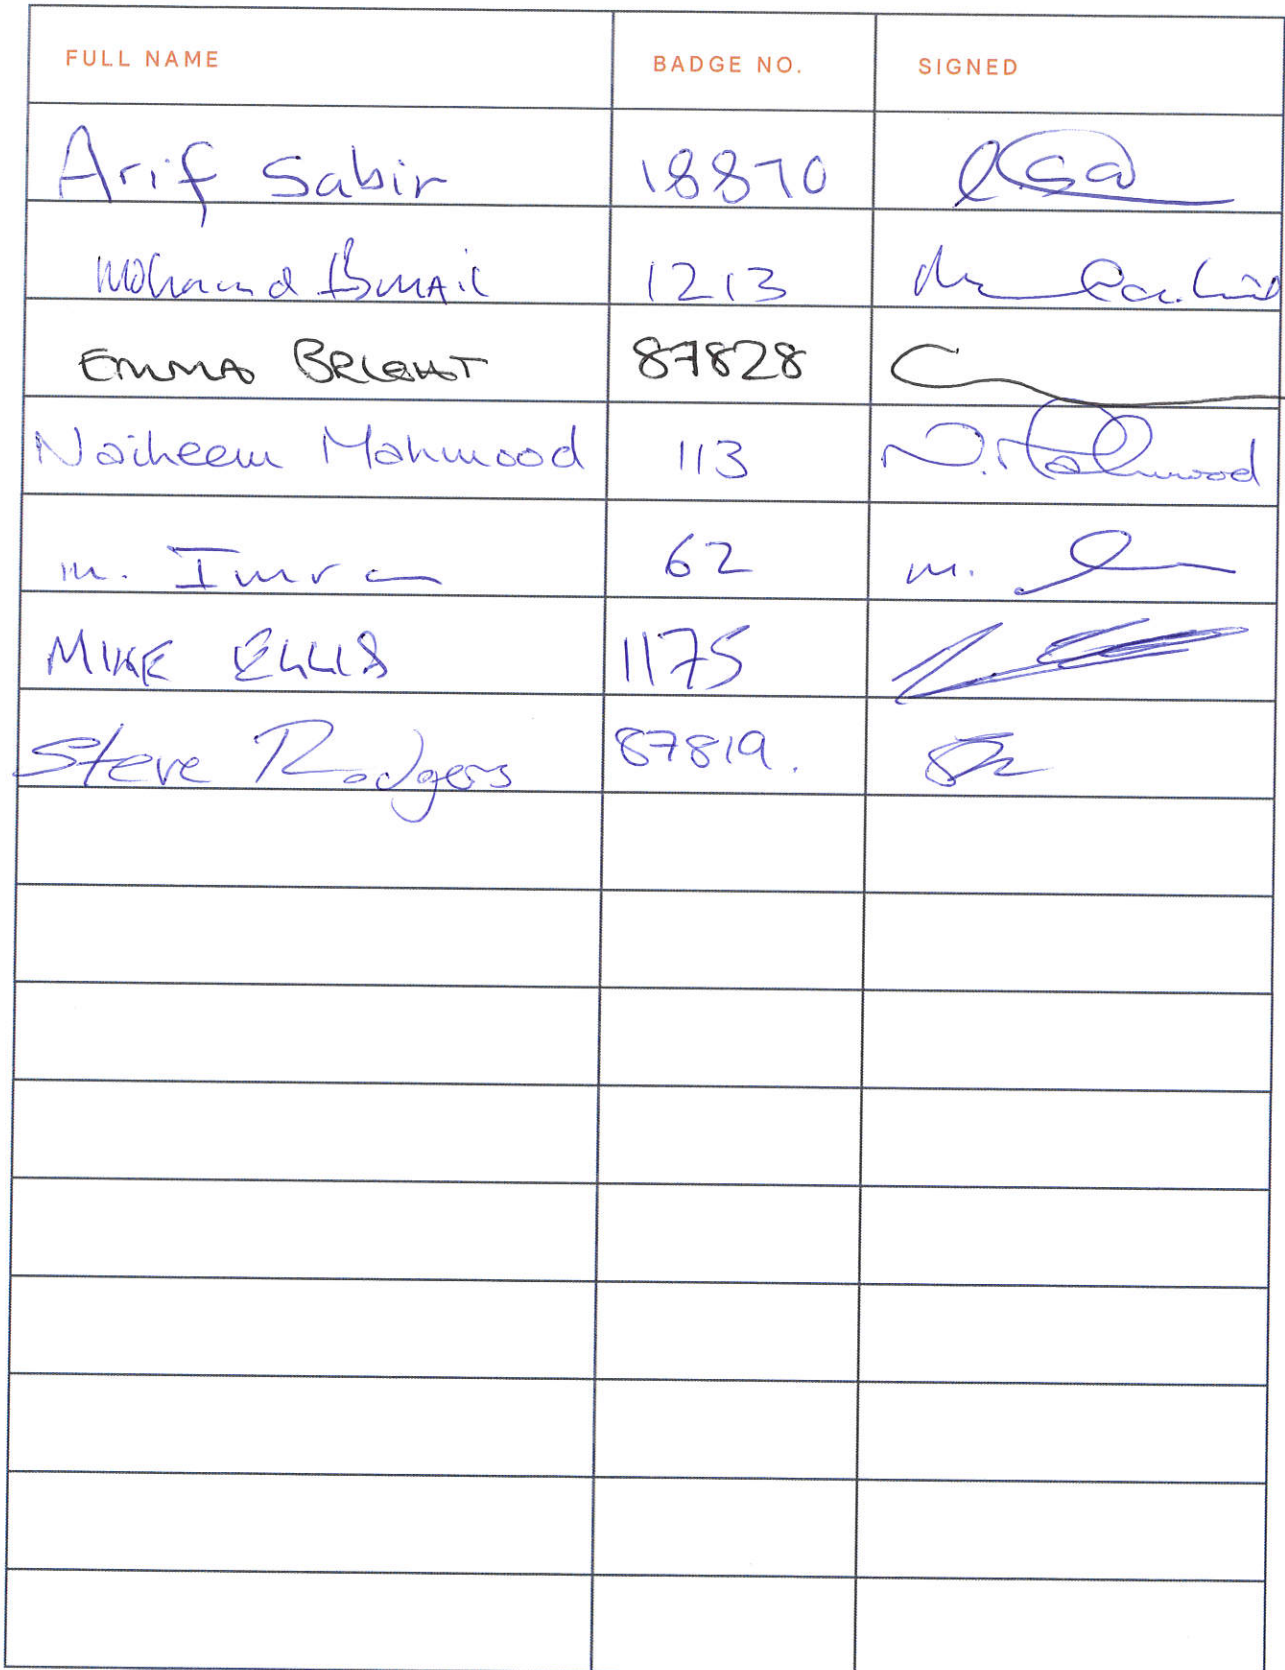 FULL NAME BADGE NO. SIGNED
Arif Sabir 18870
Mohamad Ismail 1213
EMMA BRIGHT 87828
Naiheem Mahmood 113 N. Mahmood
m. Imran 62 m.
MIKE ELLIS 1175
Steve Rodgers 87819.